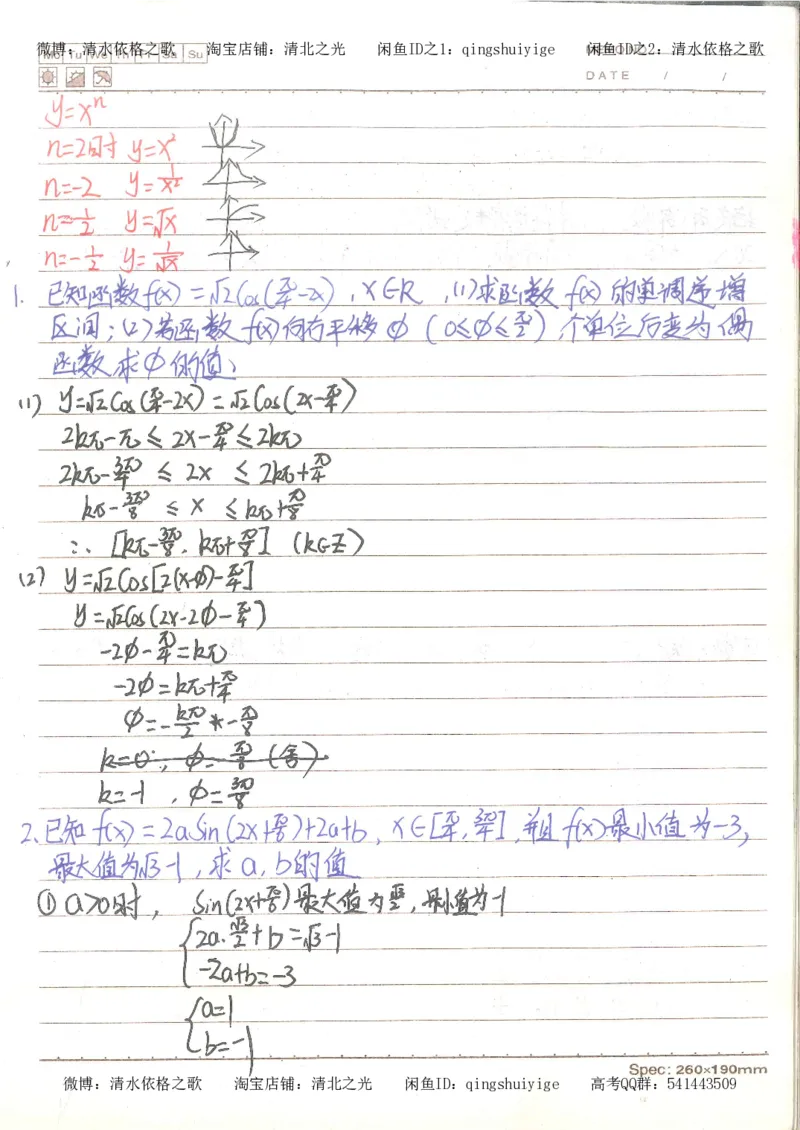 微博：清水依格之歌 淘宝店铺：清北之光 闲鱼ID之1：qingshuiyige 闲鱼ID之2：清水依格之歌
Mo Tu We Th Fr Sa Su
DATE / /
y=xⁿ
n=2时 y=x²
n=-2 y=1/x²
n=1/2 y=√x
n=-1/2 y=1/√x
1. 已知函数f(x)=√2Cos(π/4-2x), x∈R, (1)求函数f(x)的单调递增
区间;(2)若函数f(x)向右平移φ(0≤φ≤π/2),个单位后变为偶
函数,求φ的值;
(1) y=√2Cos(π/4-2x)=√2Cos(2x-π/4)
2kπ-π≤2x-π/4≤2kπ
2kπ-3π/4≤2x≤2kπ+π/4
kπ-3π/8≤x≤kπ+π/8
∴[kπ-3π/8, kπ+π/8] (k∈Z)
(2) y=√2Cos[2(x-φ)-π/4]
y=√2Cos(2x-2φ-π/4)
-2φ-π/4=kπ
-2φ=kπ+π/4
φ=-kπ/2-π/8
k=0, φ=π/8(舍)
k=-1, φ=3π/8
2.已知f(x)=2aSin(2x+π/6)+2a+b, x∈[π/4, 3π/4],并且f(x)最小值为-3,
最大值为√3-1,求a,b的值
① a>0时, Sin(2x+π/6)最大值为√3/2,最小值为-1
{2a·√3/2+b=√3-1
-2a+b=-3
{a=1
b=-1
Spec: 260×190mm
微博：清水依格之歌 淘宝店铺：清北之光 闲鱼ID：qingshuiyige 高考QQ群：541443509